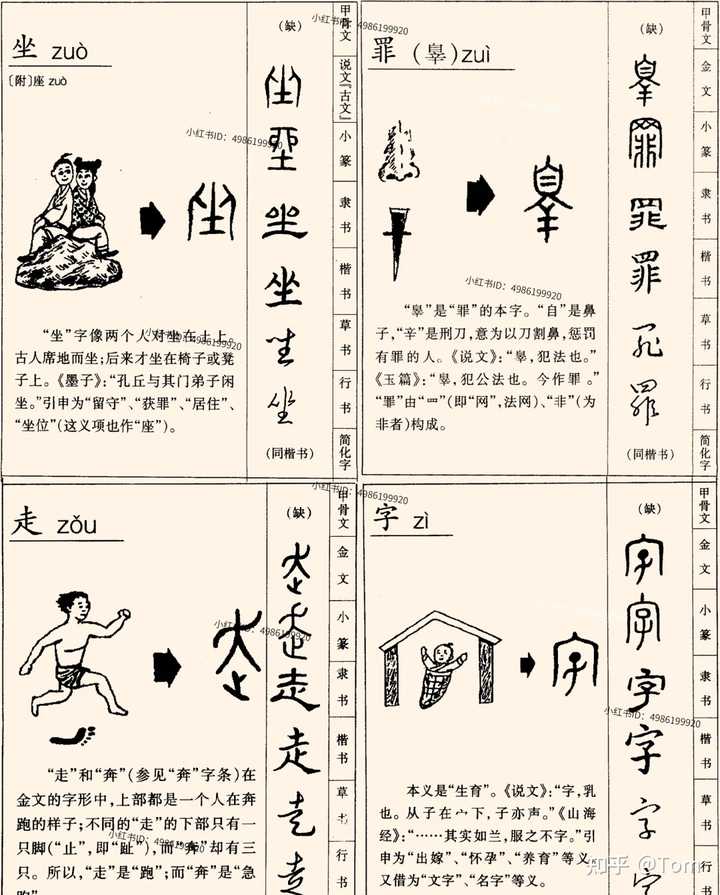 坐 zuò
〔附〕座 zuò
“坐”字像两个人对坐在土上。
古人席地而坐；后来才坐在椅子或凳
子上。《墨子》：“孔丘与其门弟子闲
坐。”引申为“留守”、“获罪”、“居住”、
“坐位”（这义项也作“座”）。
（缺）
坐
坐
坐
坐
（同楷书）
甲骨文
说文『古文』
小篆
隶书
楷书
草书
行书
简化字
罪（辠）zuì
“辠”是“罪”的本字。“自”是鼻
子，“辛”是刑刀，意为以刀割鼻，惩罚
有罪的人。《说文》：“辠，犯法也。”
《玉篇》：“辠，犯公法也。今作罪。”
“罪”由“罒”（即“网”，法网）、“非”（为
非者）构成。
（缺）
罪
罪
罪
罪
（同楷书）
甲骨文
金文
小篆
隶书
楷书
草书
行书
简化字
走 zǒu
“走”和“奔”（参见“奔”字条）在
金文的字形中，上部都是一个人在奔
跑的样子；不同的“走”的下部只有一
只脚（“止”，即“趾”），而“奔”却有三
只。所以，“走”是“跑”；而“奔”是“急
（缺）
走
走
走
走
甲骨文
金文
小篆
隶书
楷书
草书
行书
字 zì
本义是“生育”。《说文》：“字，乳
也。从子在宀下，子亦声。”《山海
经》：“……其实如兰，服之不字。”引
申为“出嫁”、“怀孕”、“养育”等义。
又借为“文字”、“名字”等义。
（缺）
字
字
字
字
甲骨文
金文
小篆
隶书
楷书
草书
行书
小红书ID：4986199920
小红书ID：4986199920
小红书ID：4986199920
小红书ID：4986199920
小红书ID：4986199920
小红书ID：4986199920
小红书ID：4986199920
小红书ID：4986199920
知乎 @Tom